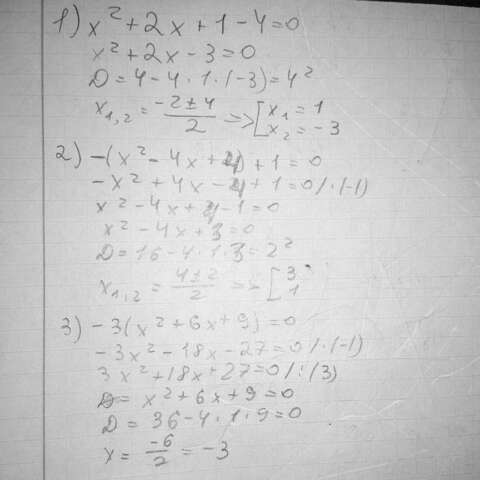 1) x² + 2x + 1 - 4 = 0
x² + 2x - 3 = 0
D = 4 - 4 · 1 · (-3) = 4²
x₁,₂ = (-2 ± 4)/2 => [x₁ = 1
x₂ = -3
2) -(x² - 4x + 4) + 1 = 0
-x² + 4x - 4 + 1 = 0 / · (-1)
x² - 4x + 4 - 1 = 0
x² - 4x + 3 = 0
D = 16 - 4 · 1 · 3 = 2²
x₁,₂ = (4 ± 2)/2 => [3
1
3) -3(x² + 6x + 9) = 0
-3x² - 18x - 27 = 0 / · (-1)
3x² + 18x + 27 = 0 / : (3)
x² + 6x + 9 = 0
D = 36 - 4 · 1 · 9 = 0
x = -6/2 = -3